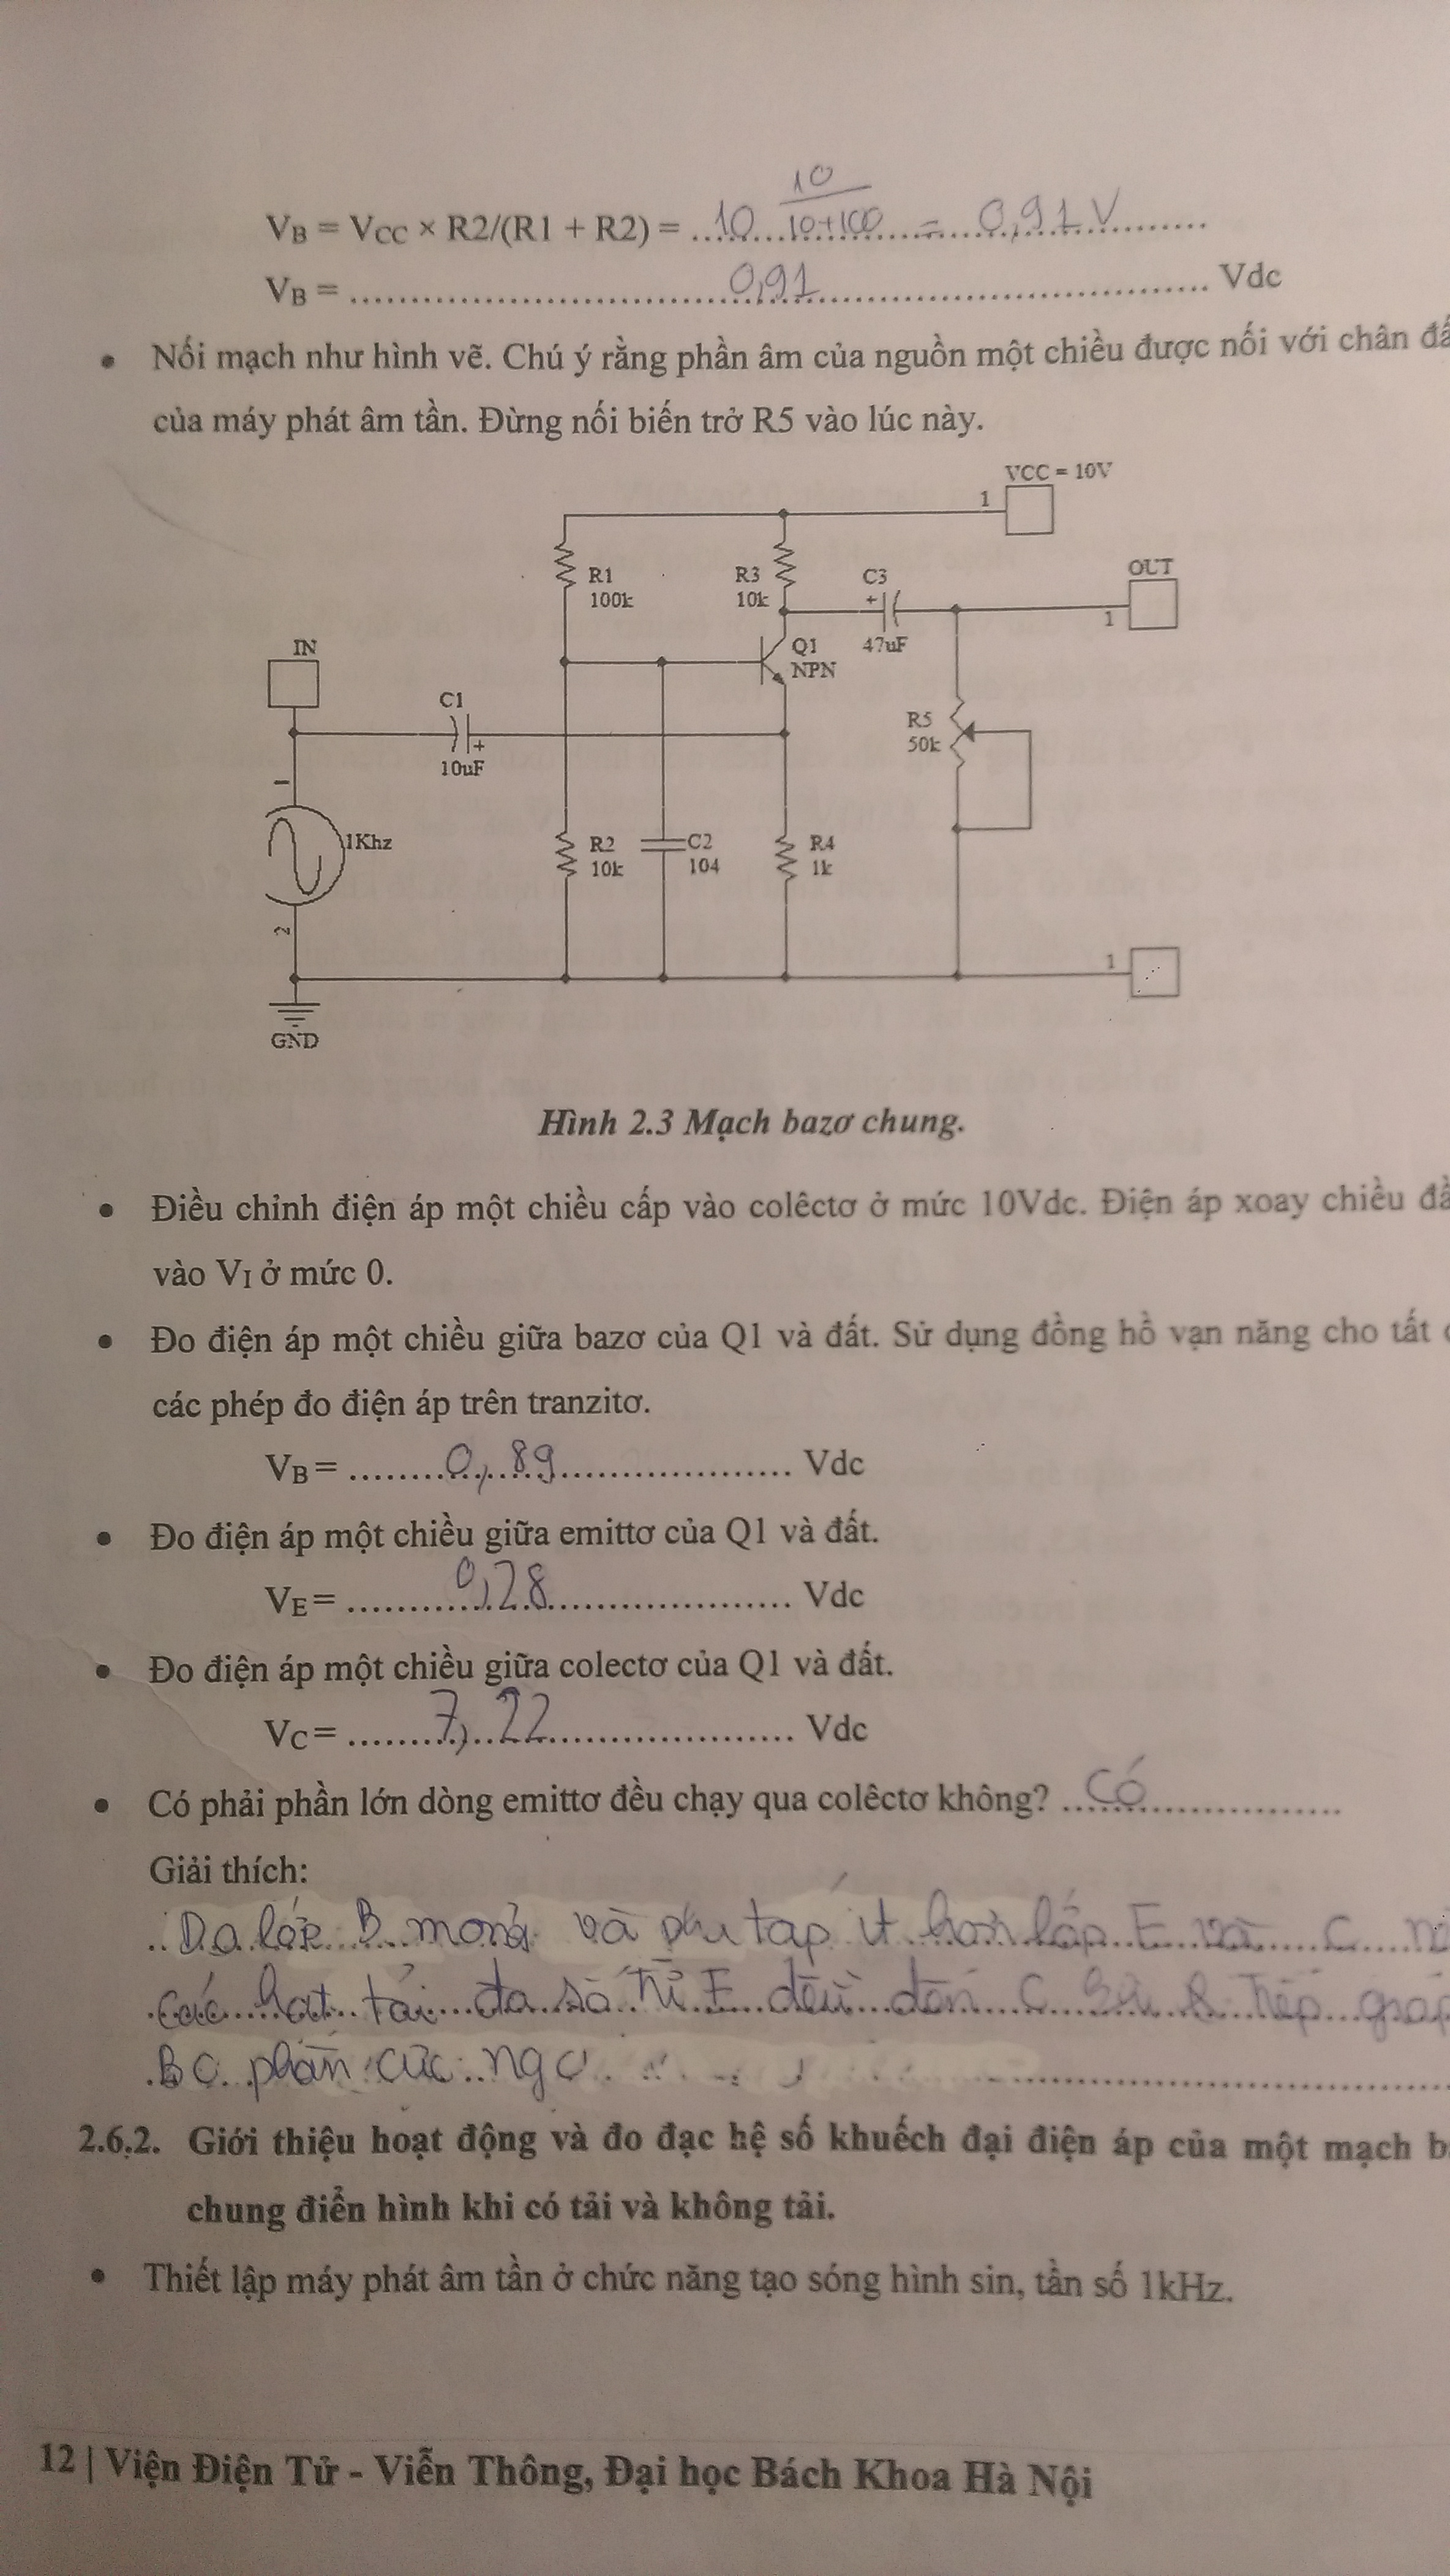 VB = VCC × R2/(R1 + R2) = 10 10/10+100 = 0,91 V
VB = 0,91 Vdc
• Nối mạch như hình vẽ. Chú ý rằng phần âm của nguồn một chiều được nối với chân
của máy phát âm tần. Đừng nối biến trở R5 vào lúc này.
VCC = 10V
1
R1
100k
R3
10k
C3
+
47uF
OUT
1
Q1
NPN
IN
C1
+
10uF
R5
50k
1
1Khz
R2
10k
C2
104
R4
1k
2
1
GND
Hình 2.3 Mạch bazơ chung.
• Điều chỉnh điện áp một chiều cấp vào colêctơ ở mức 10Vdc. Điện áp xoay chiều
vào VI ở mức 0.
• Đo điện áp một chiều giữa bazơ của Q1 và đất. Sử dụng đồng hồ vạn năng cho tất
các phép đo điện áp trên tranzitơ.
VB = 0,89 Vdc
• Đo điện áp một chiều giữa emittơ của Q1 và đất.
VE = 0,28 Vdc
• Đo điện áp một chiều giữa colectơ của Q1 và đất.
VC = 7,22 Vdc
• Có phải phần lớn dòng emittơ đều chạy qua colêctơ không? Có
Giải thích:
Do lớp B mỏng và pha tạp ít hơn lớp E và C
các hạt tải đa số từ E đều đến C tiếp
BC phân cực
2.6.2. Giới thiệu hoạt động và đo đạc hệ số khuếch đại điện áp của một mạch
chung điển hình khi có tải và không tải.
• Thiết lập máy phát âm tần ở chức năng tạo sóng hình sin, tần số 1kHz.
12 | Viện Điện Tử - Viễn Thông, Đại học Bách Khoa Hà Nội